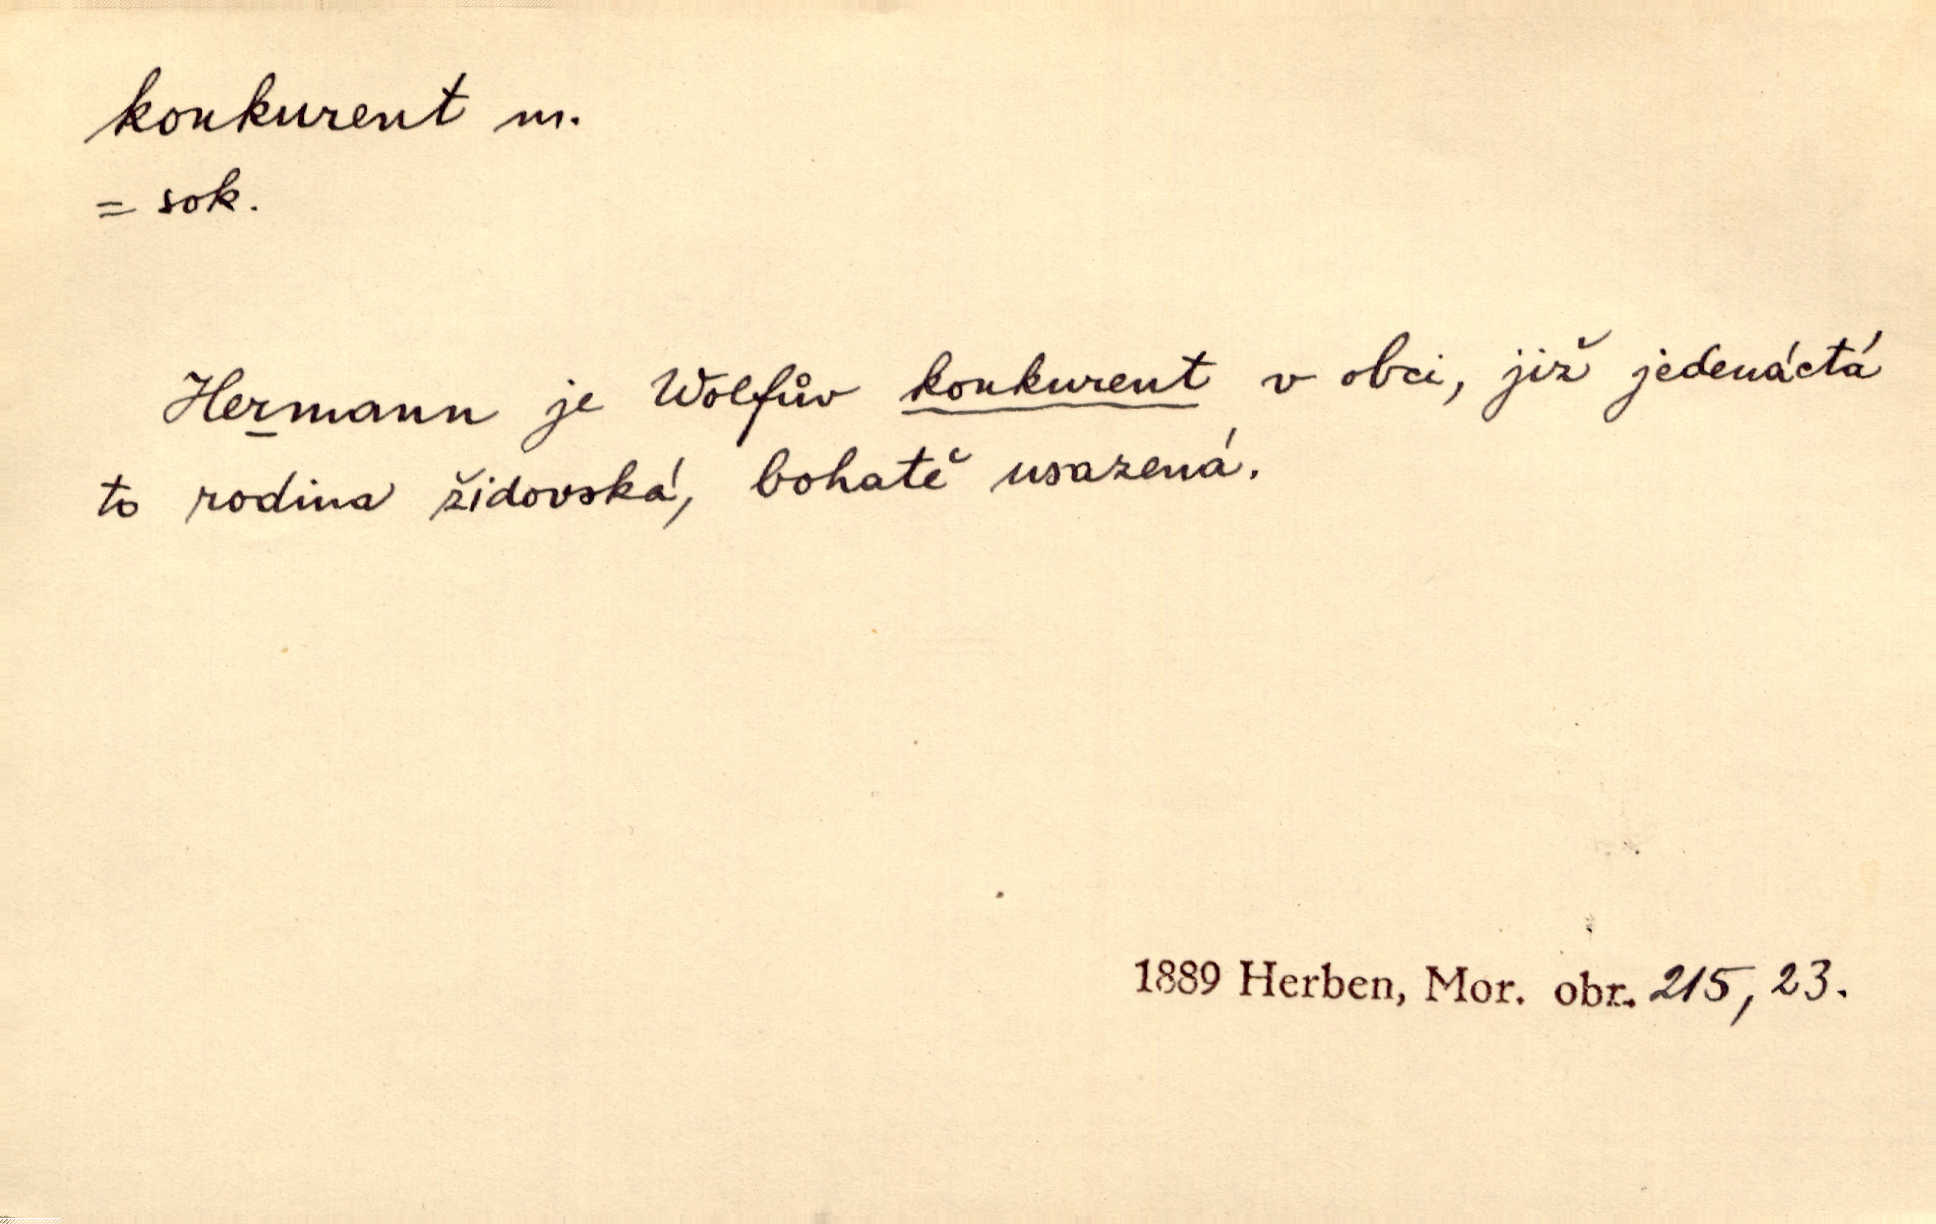 konkurent m.
= sok.
Hermann je Wolfův konkurent v obci, již jedenáctá
to rodina židovská, bohatě usazená.
1889 Herben, Mor. obr. 215, 23.